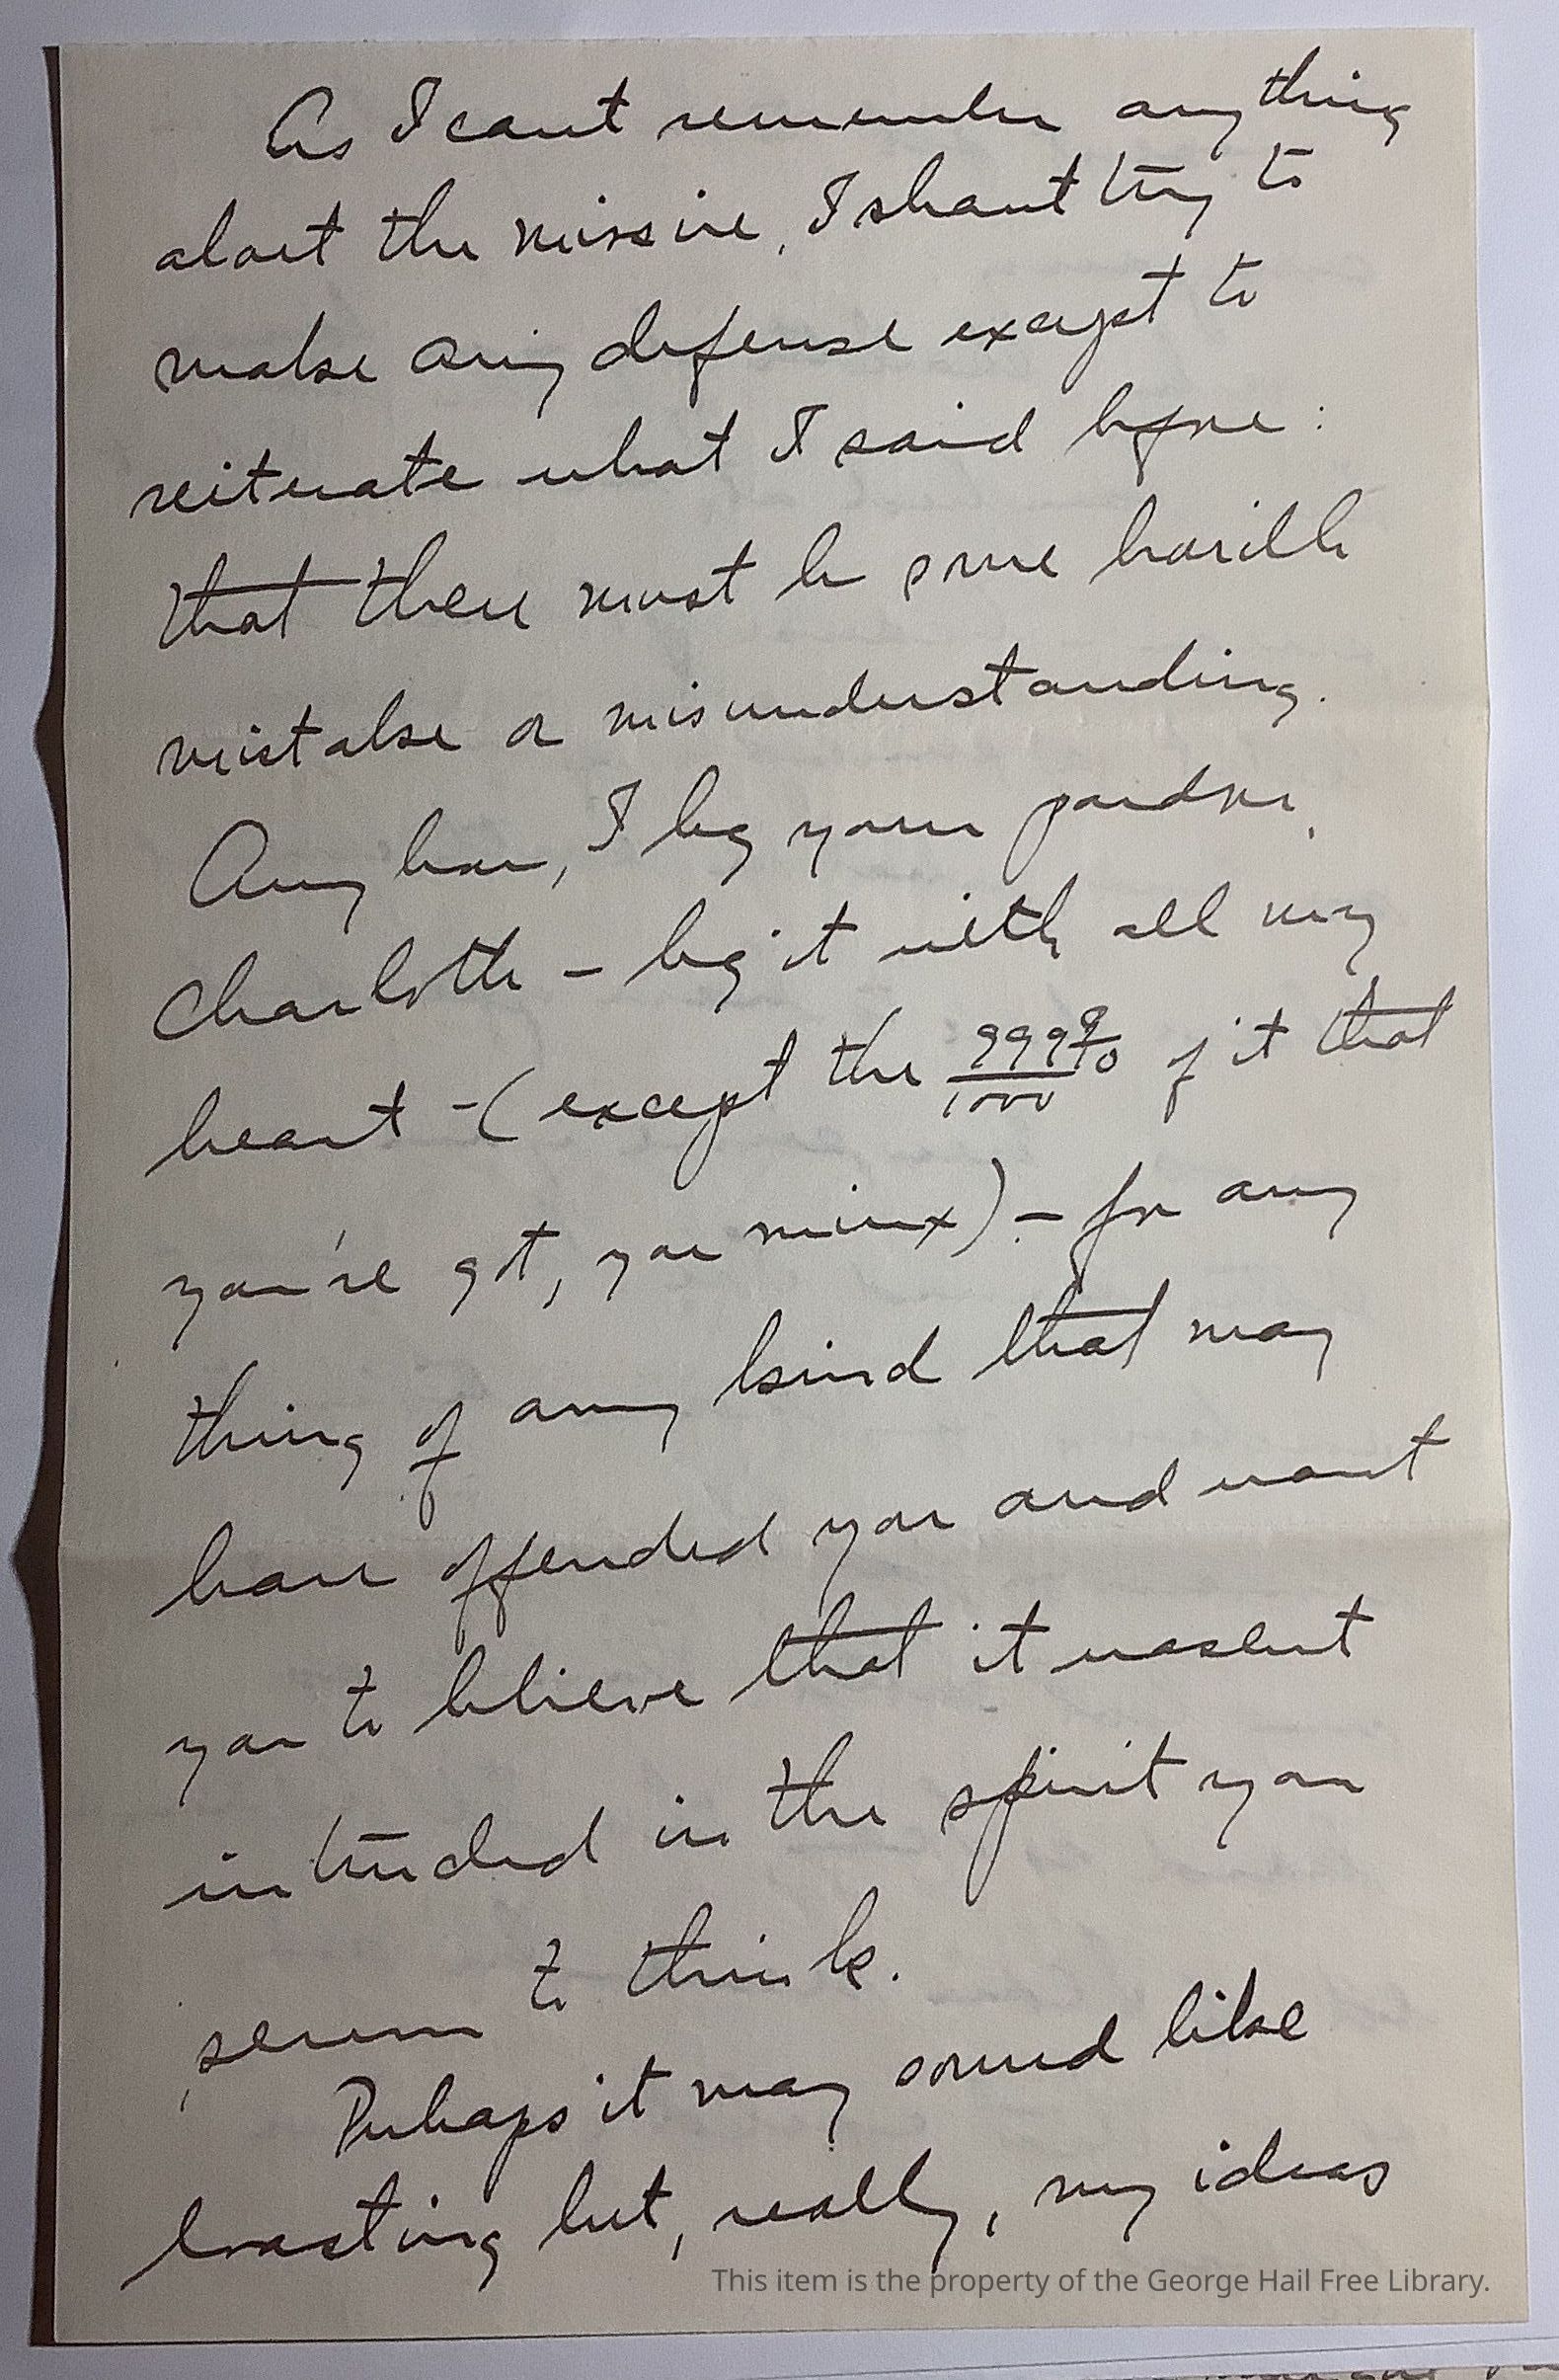 As I cant remember any thing
about the missive, I shant try to
make any defense except to
reiterate what I said before:
that there must be some horrible
mistake or misunderstanding.
Any how, I beg your pardon,
Charlotte - beg it with all my
heart - (except the 999 9/10 / 1000 of it that
you're got, you minx) - for any
thing of any kind that may
have offended you and want
you to believe that it wasent
intended in the spirit you
seem to think.
Perhaps it may sound like
boasting but, really, my ideas
This item is the property of the George Hail Free Library.